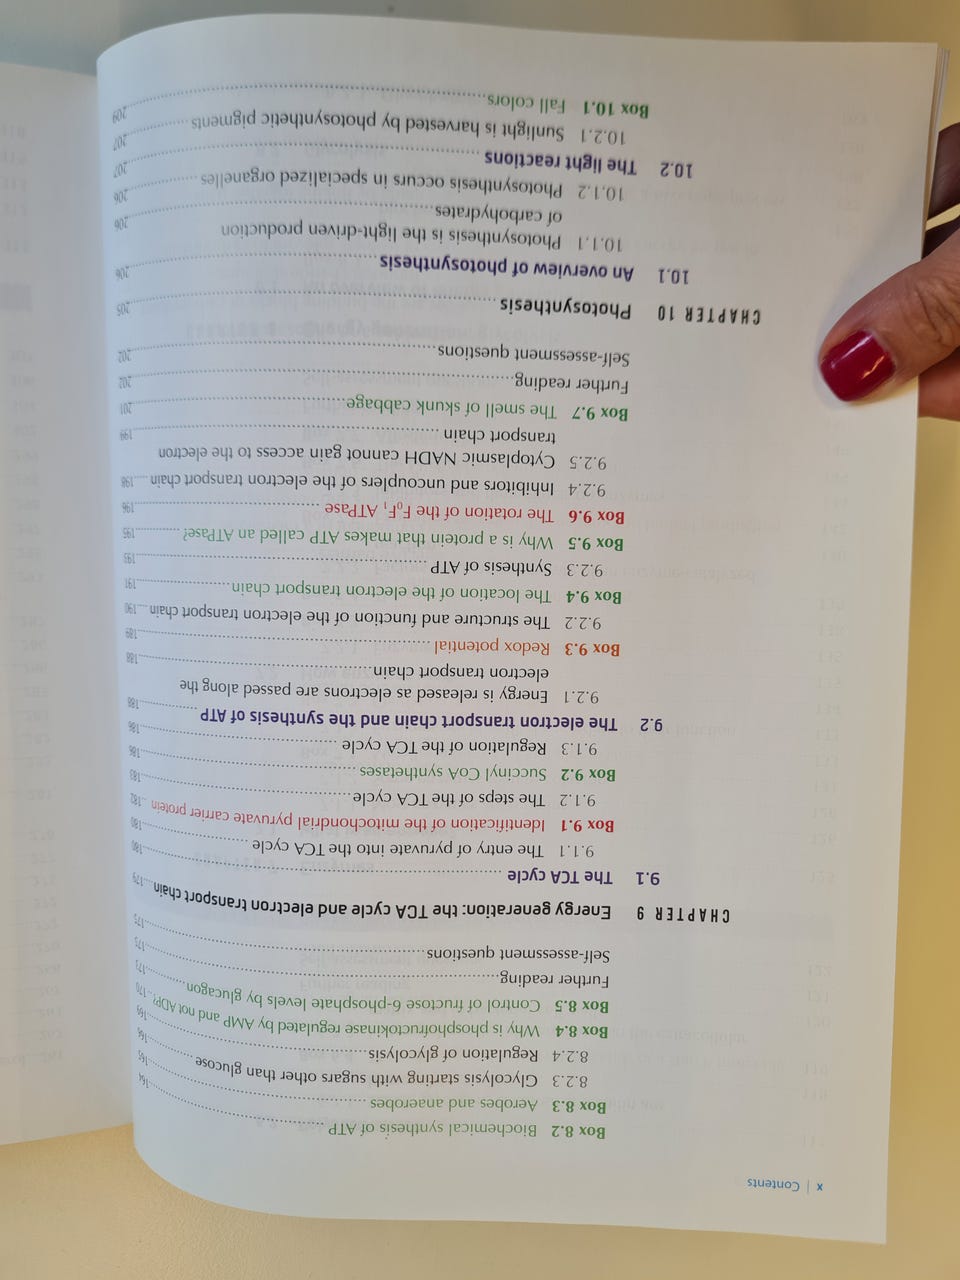 x | Contents
Box 8.2 Biochemical synthesis of ATP ........ 164
Box 8.3 Aerobes and anaerobes ........ 165
8.2.3 Glycolysis starting with sugars other than glucose ........ 166
8.2.4 Regulation of glycolysis ........ 169
Box 8.4 Why is phosphofructokinase regulated by AMP and not ADP? ... 170
Box 8.5 Control of fructose 6-phosphate levels by glucagon ........ 173
Further reading ........ 173
Self-assessment questions ........ 175
CHAPTER 9 Energy generation: the TCA cycle and electron transport chain .... 179
9.1 The TCA cycle ........ 180
9.1.1 The entry of pyruvate into the TCA cycle ........ 180
Box 9.1 Identification of the mitochondrial pyruvate carrier protein ... 182
9.1.2 The steps of the TCA cycle ........ 183
Box 9.2 Succinyl CoA synthetases ........ 186
9.1.3 Regulation of the TCA cycle ........ 186
9.2 The electron transport chain and the synthesis of ATP ........ 188
9.2.1 Energy is released as electrons are passed along the
electron transport chain ........ 188
Box 9.3 Redox potential ........ 189
9.2.2 The structure and function of the electron transport chain .... 190
Box 9.4 The location of the electron transport chain ........ 191
9.2.3 Synthesis of ATP ........ 193
Box 9.5 Why is a protein that makes ATP called an ATPase? ........ 195
Box 9.6 The rotation of the F₀F₁ ATPase ........ 196
9.2.4 Inhibitors and uncouplers of the electron transport chain .... 198
9.2.5 Cytoplasmic NADH cannot gain access to the electron
transport chain ........ 199
Box 9.7 The smell of skunk cabbage ........ 201
Further reading ........ 202
Self-assessment questions ........ 202
CHAPTER 10 Photosynthesis ........ 205
10.1 An overview of photosynthesis ........ 206
10.1.1 Photosynthesis is the light-driven production
of carbohydrates ........ 206
10.1.2 Photosynthesis occurs in specialized organelles ........ 206
10.2 The light reactions ........ 207
10.2.1 Sunlight is harvested by photosynthetic pigments ........ 207
Box 10.1 Fall colors ........ 209